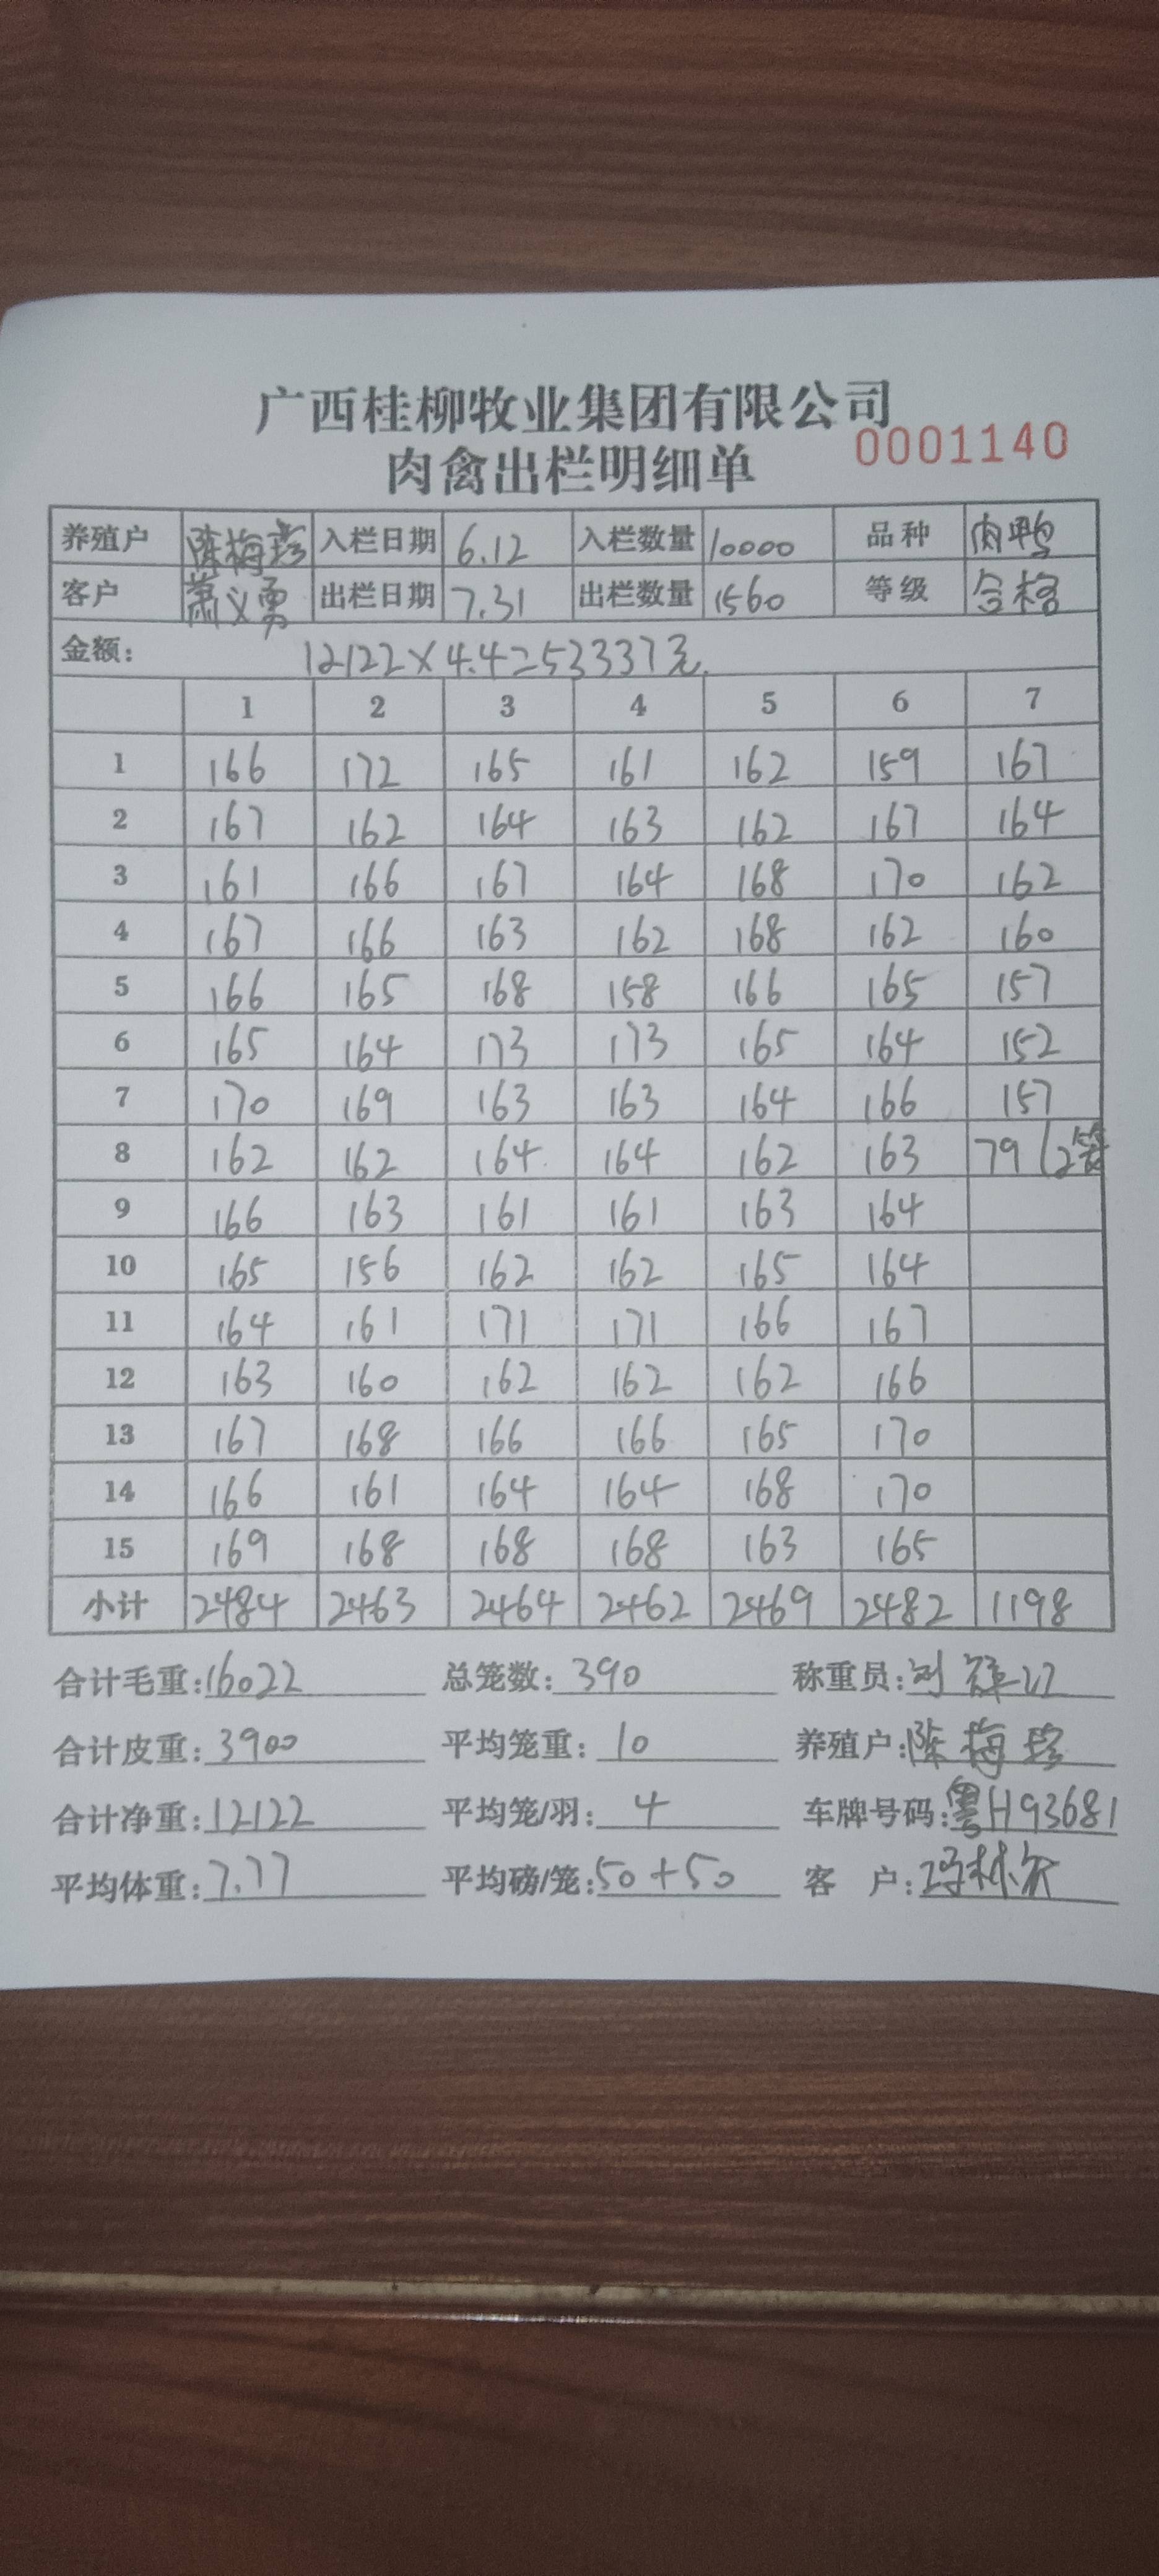 广西桂柳牧业集团有限公司
0001140
肉禽出栏明细单
养殖户 陈梅珍 入栏日期 6.12 入栏数量 10000 品种 肉鸭
客户 萧义勇 出栏日期 7.31 出栏数量 1560 等级 合格
金额: 12122×4.4=53337元.
1 2 3 4 5 6 7
1 166 172 165 161 162 159 167
2 167 162 164 163 162 167 164
3 161 166 167 164 168 170 162
4 167 166 163 162 168 162 160
5 166 165 168 158 166 165 157
6 165 164 173 173 165 164 152
7 170 169 163 163 164 166 157
8 162 162 164 164 162 163 79(2笼
9 166 163 161 161 163 164
10 165 156 162 162 165 164
11 164 161 171 171 166 167
12 163 160 162 162 162 166
13 167 168 166 166 165 170
14 166 161 164 164 168 170
15 169 168 168 168 163 165
小计 2484 2463 2464 2462 2469 2482 1198
合计毛重:16022 总笼数:390 称重员:刘
合计皮重:3900 平均笼重:10 养殖户:陈梅珍
合计净重:12122 平均笼/羽:4 车牌号码:粤H93681
平均体重:7.77 平均磅/笼:50+50 客 户:冯林